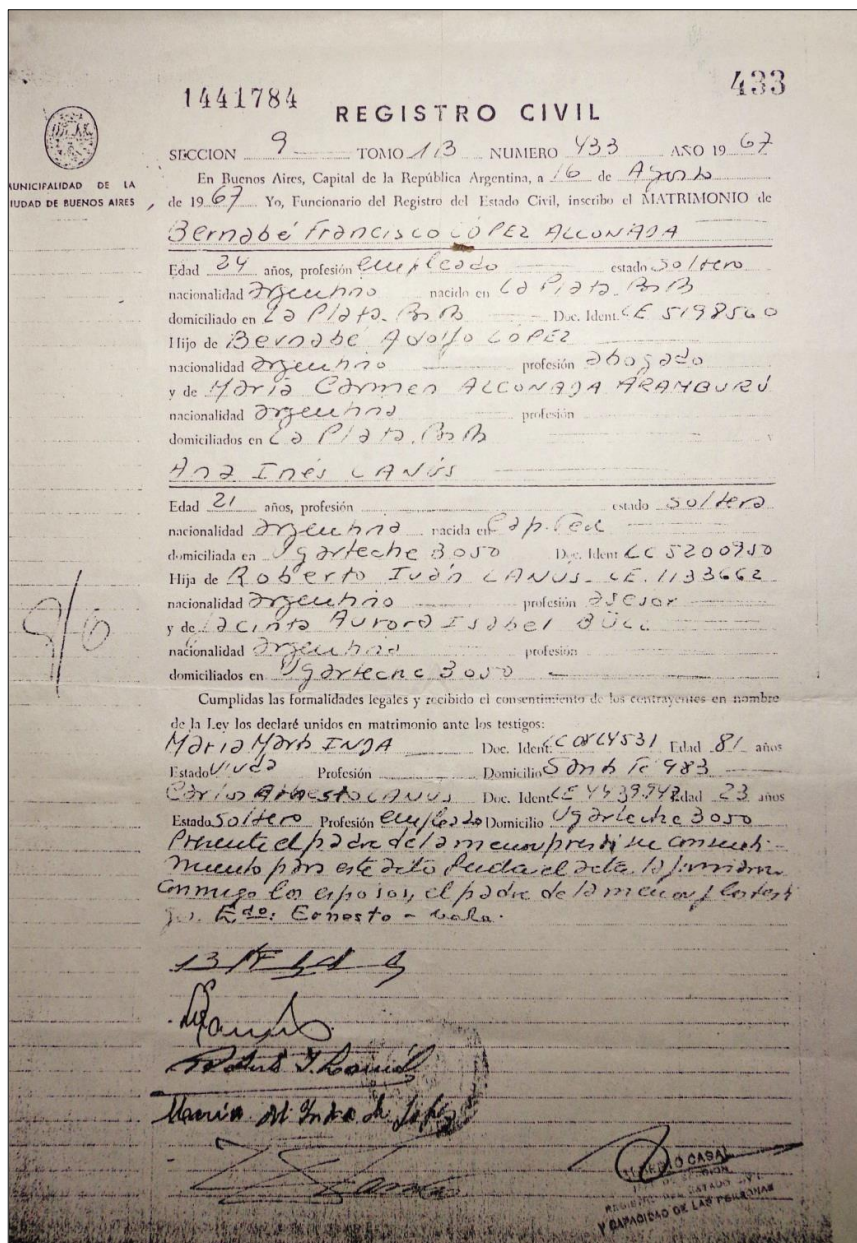 433
1441784
REGISTRO CIVIL
MUNICIPALIDAD DE LA
CIUDAD DE BUENOS AIRES
SECCION 9 TOMO 1B NUMERO 433 AÑO 1967
En Buenos Aires, Capital de la República Argentina, a 16 de Agosto
de 1967 Yo, Funcionario del Registro del Estado Civil, inscribo el MATRIMONIO de
Bernabé Francisco LÓPEZ ALCONADA
Edad 24 años, profesión empleado estado soltero
nacionalidad argentino nacido en La Plata. Bs As
domiciliado en La Plata. Bs As Doc. Ident. LE 5198560
Hijo de Bernabé Adolfo LOPEZ
nacionalidad argentino profesión abogado
y de María Carmen ALCONADA ARAMBURÚ
nacionalidad argentina profesión
domiciliados en La Plata. Bs As
Ana Inés LANÚS
Edad 21 años, profesión estado soltera
nacionalidad argentina nacida en Cap. Fed
domiciliada en Ugarteche 3050 Doc. Ident LC 5200950
Hija de Roberto Iván LANUS. LE. 1133662
nacionalidad argentino profesión asesor
y de Jacinta Aurora Isabel
nacionalidad argentina profesión
domiciliados en Ugarteche 3050
Cumplidas las formalidades legales y recibido el consentimiento de los contrayentes en nombre
de la Ley los declaré unidos en matrimonio ante los testigos:
María Marta INDA Doc. Ident. Edad 81 años
Estado Viuda Profesión Domicilio Santa Fe 983
Carlos LANUS Doc. Ident LE Edad 23 años
Estado Soltero Profesión empleado Domicilio Ugarteche 3050
Presente el padre de la menor presta su consenti-
miento para este acto Leida el acta la firmaron
conmigo los esposos, el padre de la menor y los testi
gos. Edo: Ernesto - vale.
María M. Inda de López
CASAL
REGISTRO DEL ESTADO CIVIL
Y CAPACIDAD DE LAS PERSONAS